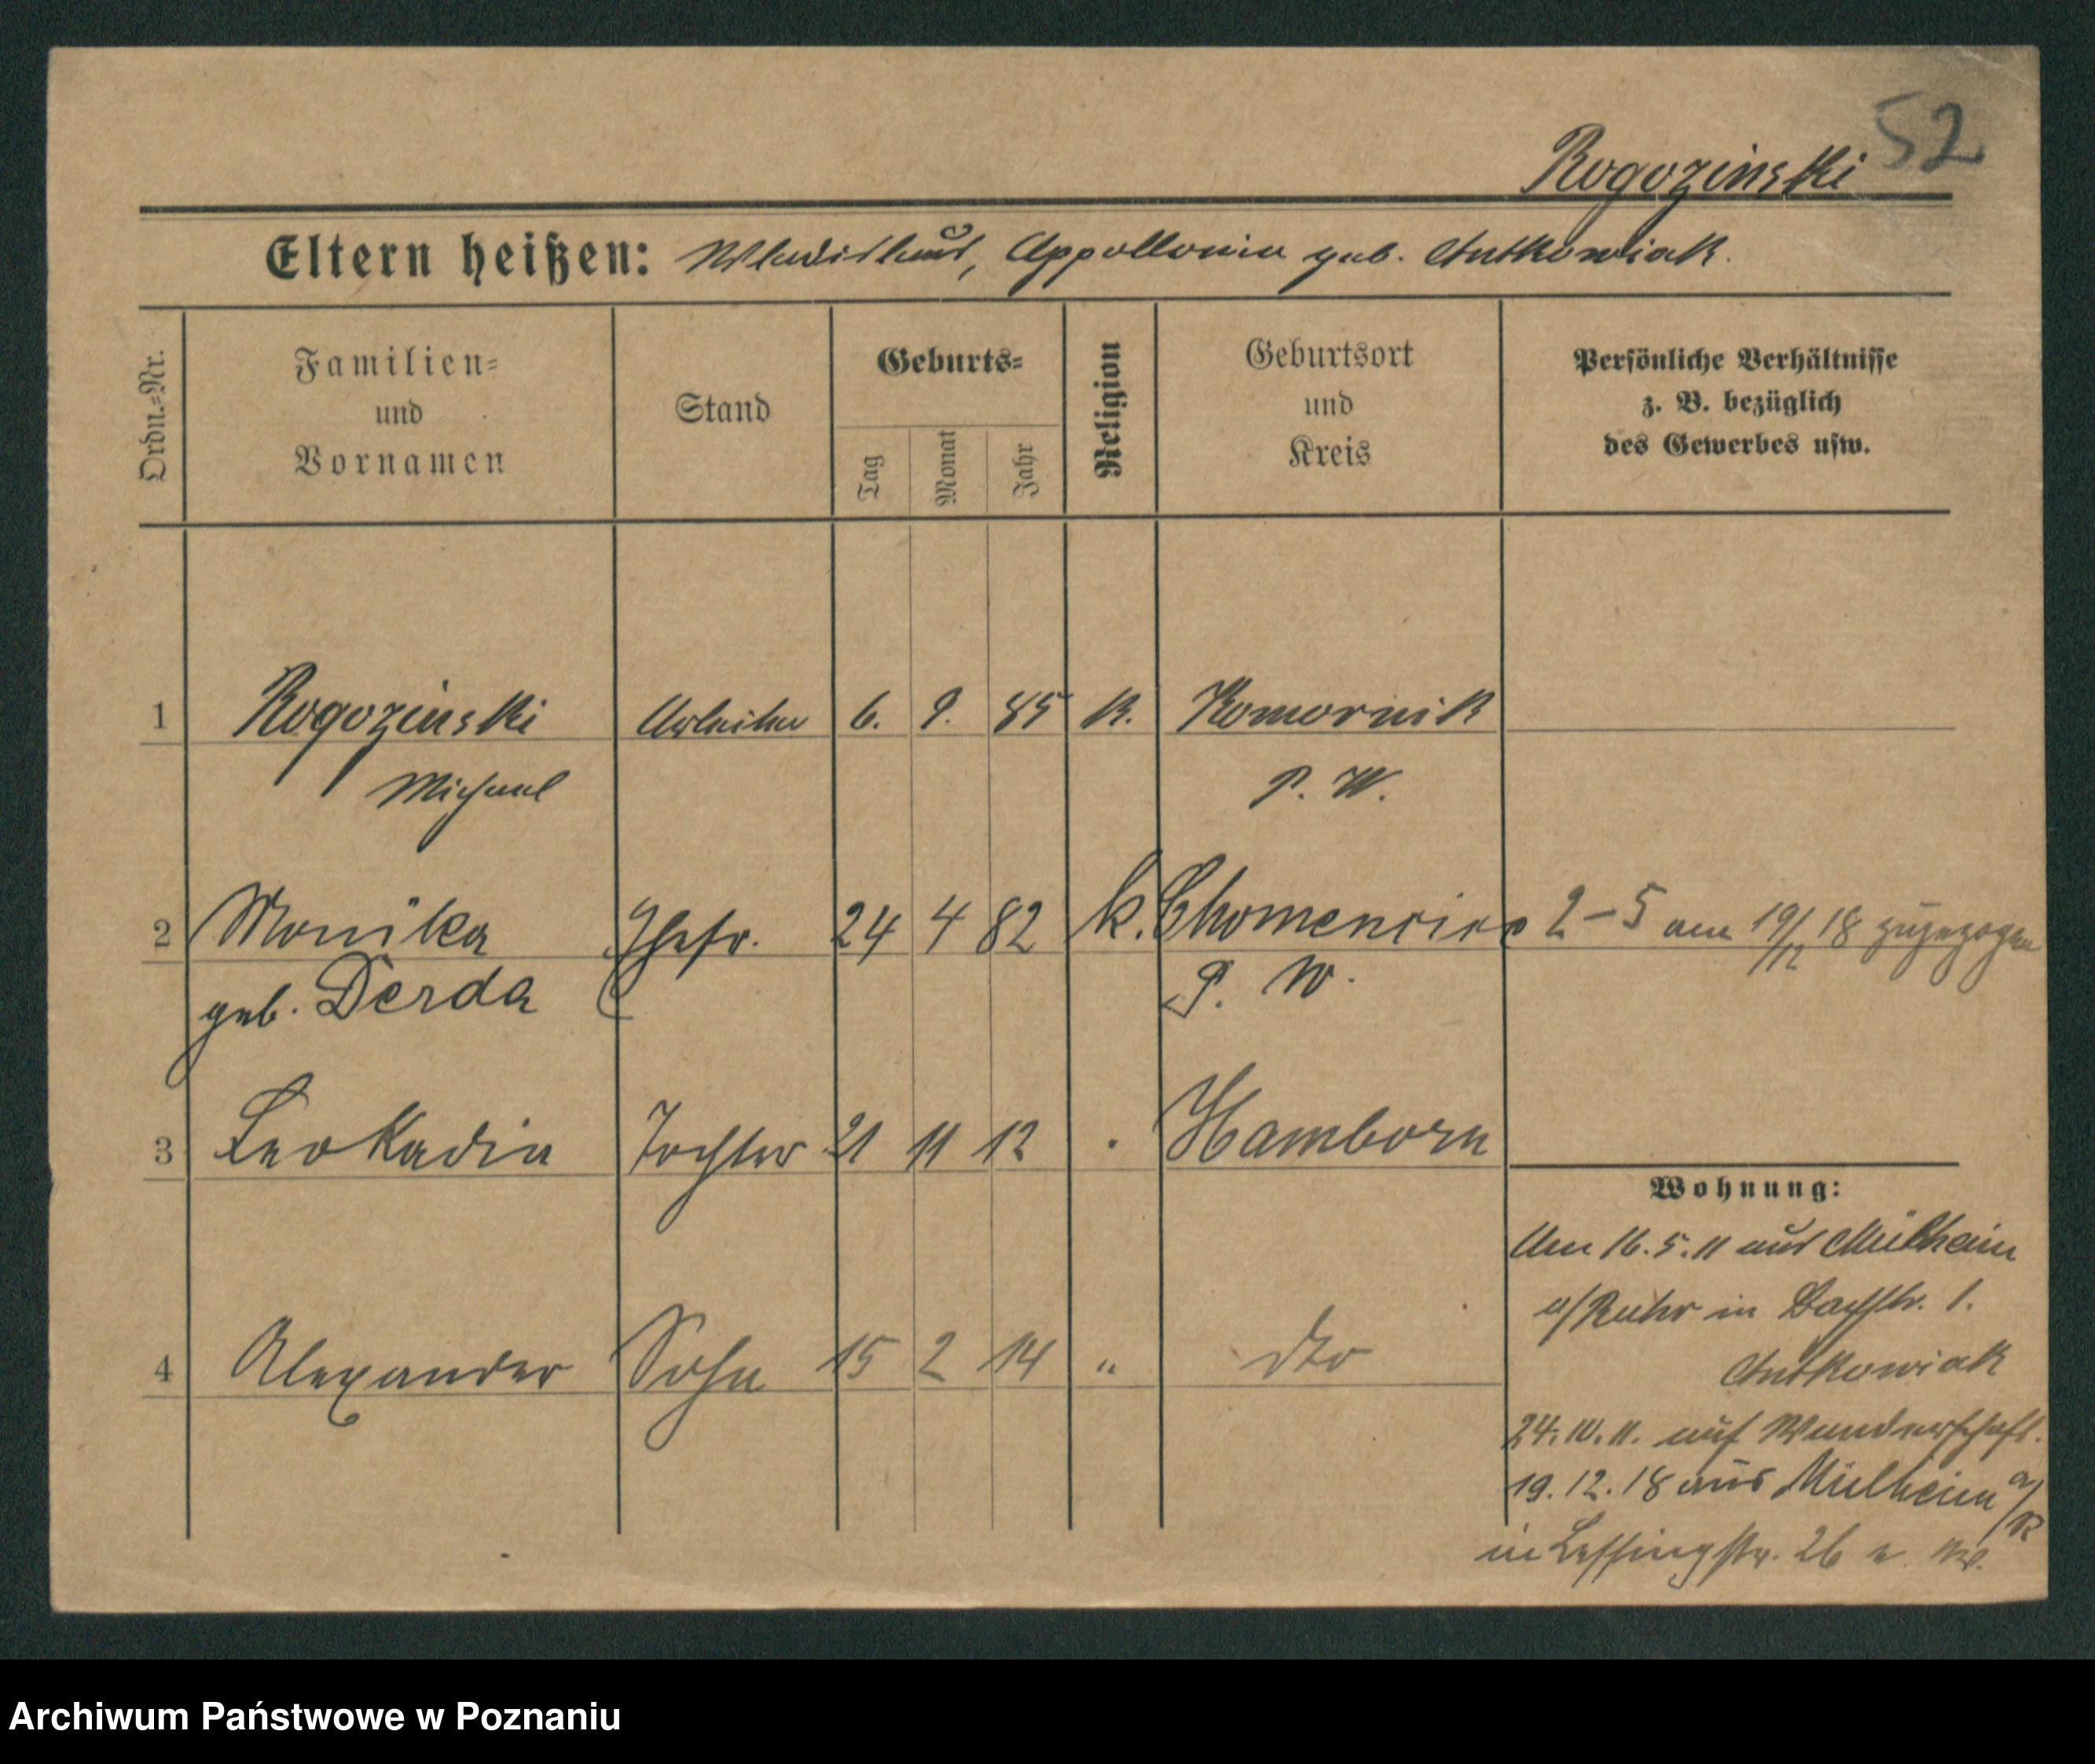 52
Rogozinski
Eltern heißen: Wladislaus, Appollonia geb. Antkowiak.
Ordn.-Nr.
Familien-
und
Vornamen
Stand
Geburts-
Tag
Monat
Jahr
Religion
Geburtsort
und
Kreis
Persönliche Verhältnisse
z. B. bezüglich
des Gewerbes usw.
1 Rogozinski Arbeiter 6. 9. 85 K. Komornik
Michael P. W.
2 Monika Ehefr. 24 4 82 k. 2–5 am 19/12 18 zugezogen
geb. Derda P. W.
3 Leokadia Tochter 21 11 12 Hamborn
Wohnung:
Am 16.5.11 aus Mülheim
a/Ruhr in 1.
Antkowiak
4 Alexander Sohn 15 2 14 " dto
24.10.11. auf Wanderschaft.
19.12.18 aus Mülheim a/R
in Lessingstr. 26
Archiwum Państwowe w Poznaniu